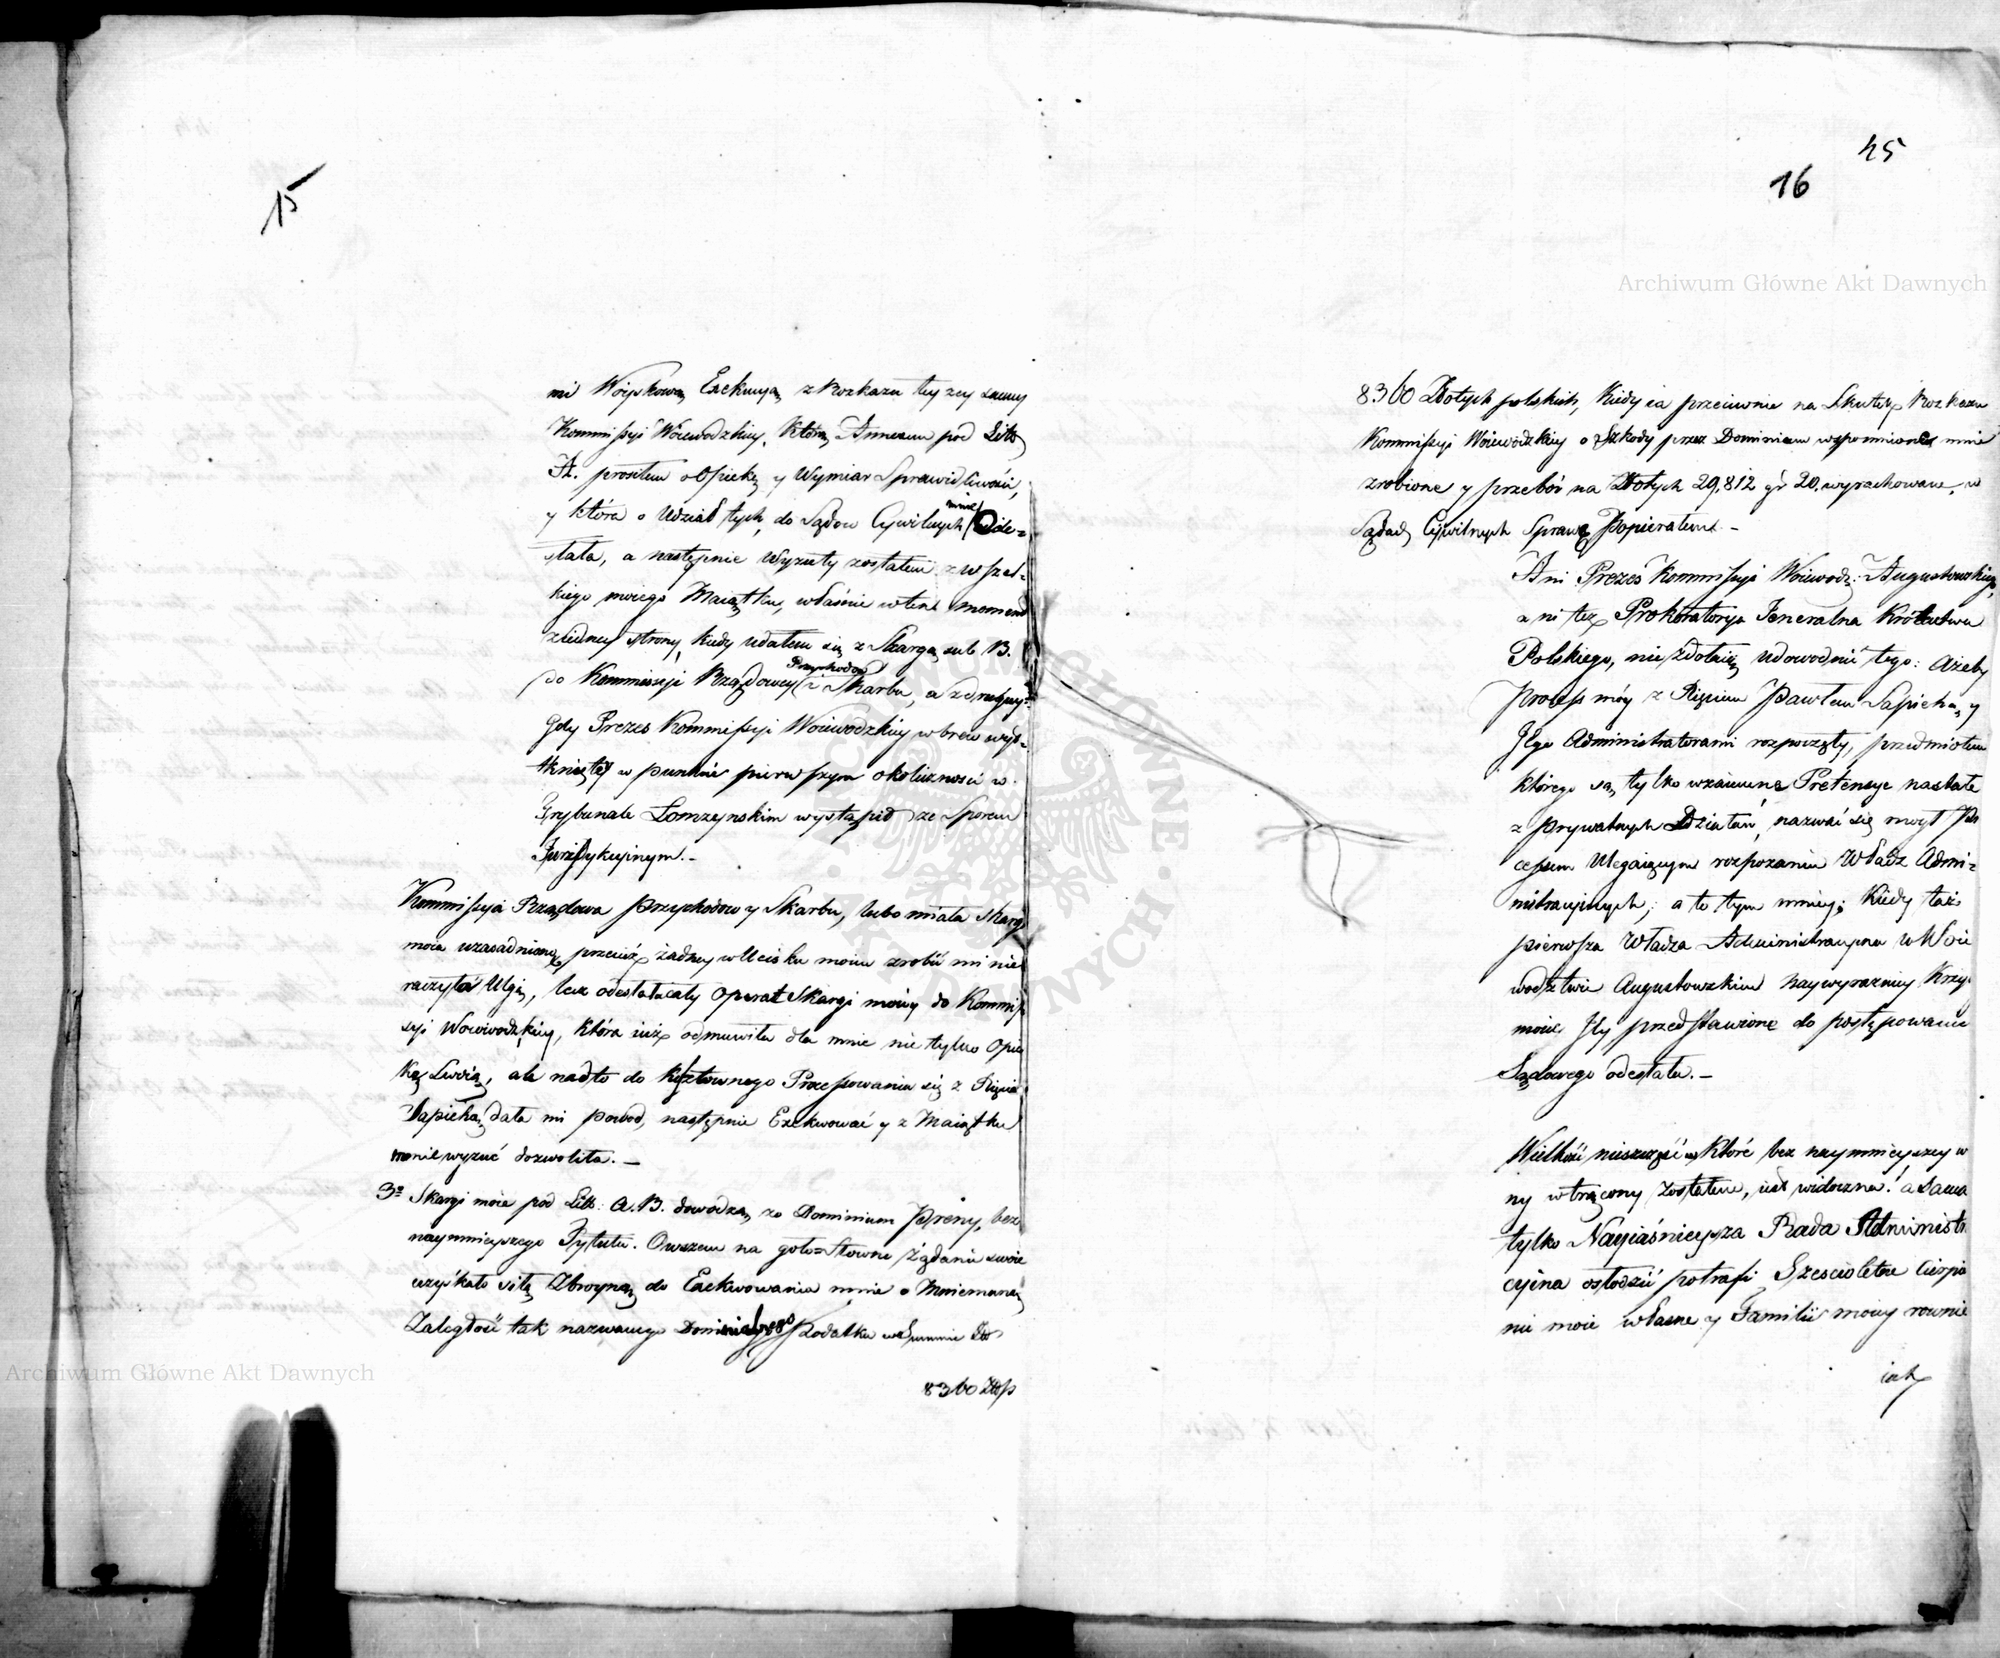 15
mi Woyskową Exekucyą z Rozkazu tey zey samey
Kommissyi Woiewodzkiey, którą Annexum pod Litt.
A. prosiłem o Opiekę y Wymiar Sprawiedliwości,
y która o Udział tych, do Sądow Cywilnych mnie Ode=
słała, a następnie Wyzuty zostałem z wszel=
kiego moiego Maiątku, właśnie w ten moment
z iedney strony, kiedy udałem się z Skargą sub B.
do Kommissyi Rządowey Przychodow i Skarbu, a z drugiey
Gdy Prezes Kommissyi Woiewodzkiey wbrew wyt=
kniętey w punkcie pierwszym okoliczności w
Trybunale Łomzynskim wystąpił ze Sporem
Jurisdykcyinym.–
Kommissya Rządowa Przychodow y Skarbu, lubo miała Skargę
moią uzasadnioną, przecież żadney w Ucisku moim zrobić mi nie
raczyła Ulgi, lecz odesłała cały Operat Skargi moiey do Kommis
syi Woiewodzkiey, która iuż odmuwiła dla mnie nie tylko Opie
kę Swoią, ale nadto do kosztownego Processowania się z Xięciem
Sapiehą dała mi powod, następnie Exekwować y z Maiątku
mnie wyzuć dozwoliła.–
3º Skargi moie pod Litt: A. B. dowodzą, ze Dominium Preny, bez
naymnieyszego Tytułu. Owszem na gołosłowne Żądanie swoie
uzyskało siłę Zbroyną do Exekwowania mnie o Mniemaną
Zaległość tak nazwanego Podatku w Summie Zło
8360 Złp
45
16
Archiwum Główne Akt Dawnych
8360 Złotych polskich, Kiedy ia przeciwnie na Skutek Rozkazu
Kommissyi Woiewodzkiey o Szkody przez Dominium wspomnione mnie
zrobione y przeboi na Złotych 29,812 gr 20. wyrachowane, w
Sądach Cywilnych Sprawę Popierałem.–
Ani Prezes Kommissyi Woiewodz: Augustowskiey,
ani tez Prokuratorya Jeneralna Krolestwa
Polskiego, nie zdołaią udowodnić tego: Ażeby
Process móy z Xięciem Pawłem Sapiehą y
Jego Administratorami rozpoczęty, przedmiotem
którego są tylko wzaiemne Pretensye nastałe
z prywatnych Działań, nazwać się mogł Pro
cessem Ulegaiącym rozpoznaniu Władz Admi=
nistracyinych; a to tym mniey; Kiedy taż
pierwsza Władza Administracyina w Woie
wodztwie Augustowskim naywyrazniey Krzy
moie Jey przedstawione do postępowania
Sądowego odesłała.–
Wielkość nieszczęść w które bez naymnieyszey wi
ny wtrącony zostałem, iest widoczna! a Sama
tylko Nayiaśnieysza Rada Administra
cyina osłodzić potrafi Szescioletne Cierpie
nie moie własne y Familii moiey rownie
iak
Archiwum Główne Akt Dawnych
ARCHIWUM GŁÓWNE AKT DAWNYCH